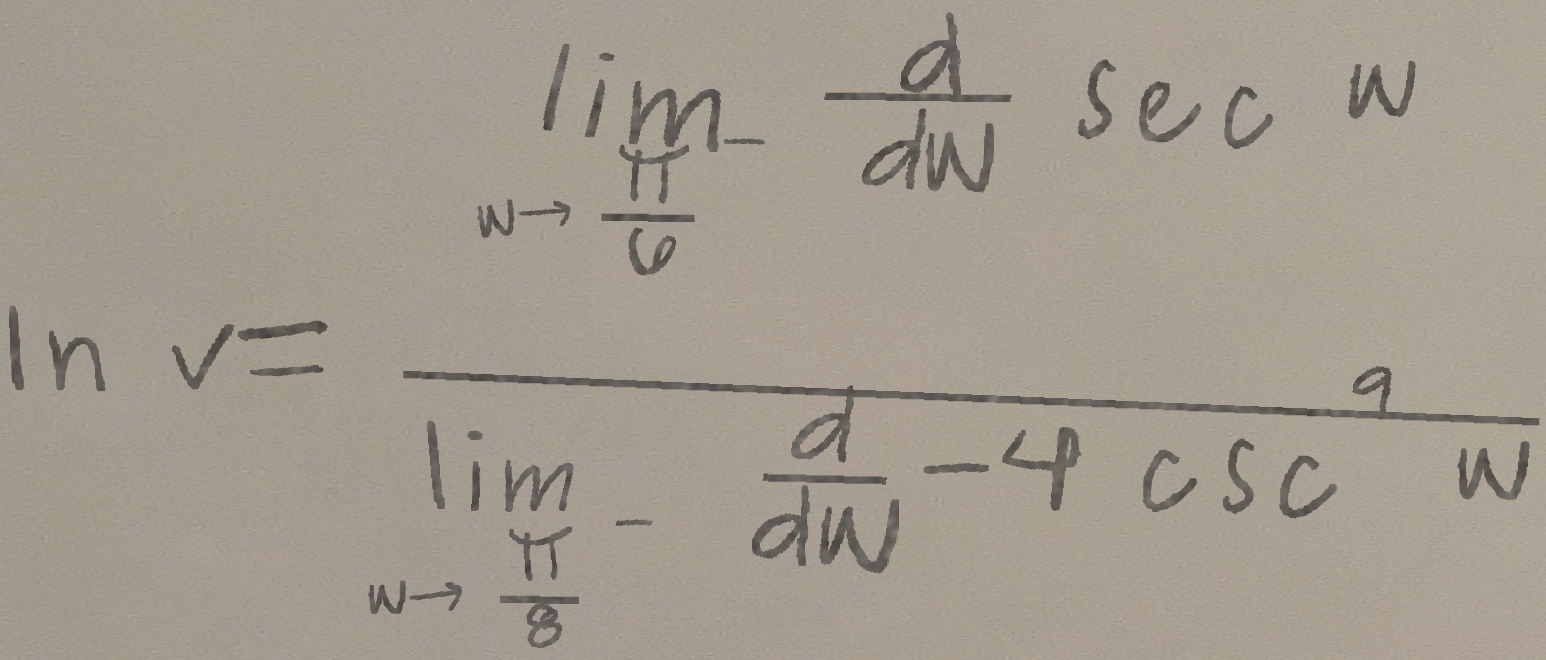 \ln v = \frac{\lim_{w \to \frac{\pi}{6}^{-}} \frac{d}{dw} \sec w}{\lim_{w \to \frac{\pi}{8}^{-}} \frac{d}{dw} -4 \csc^{9} w}